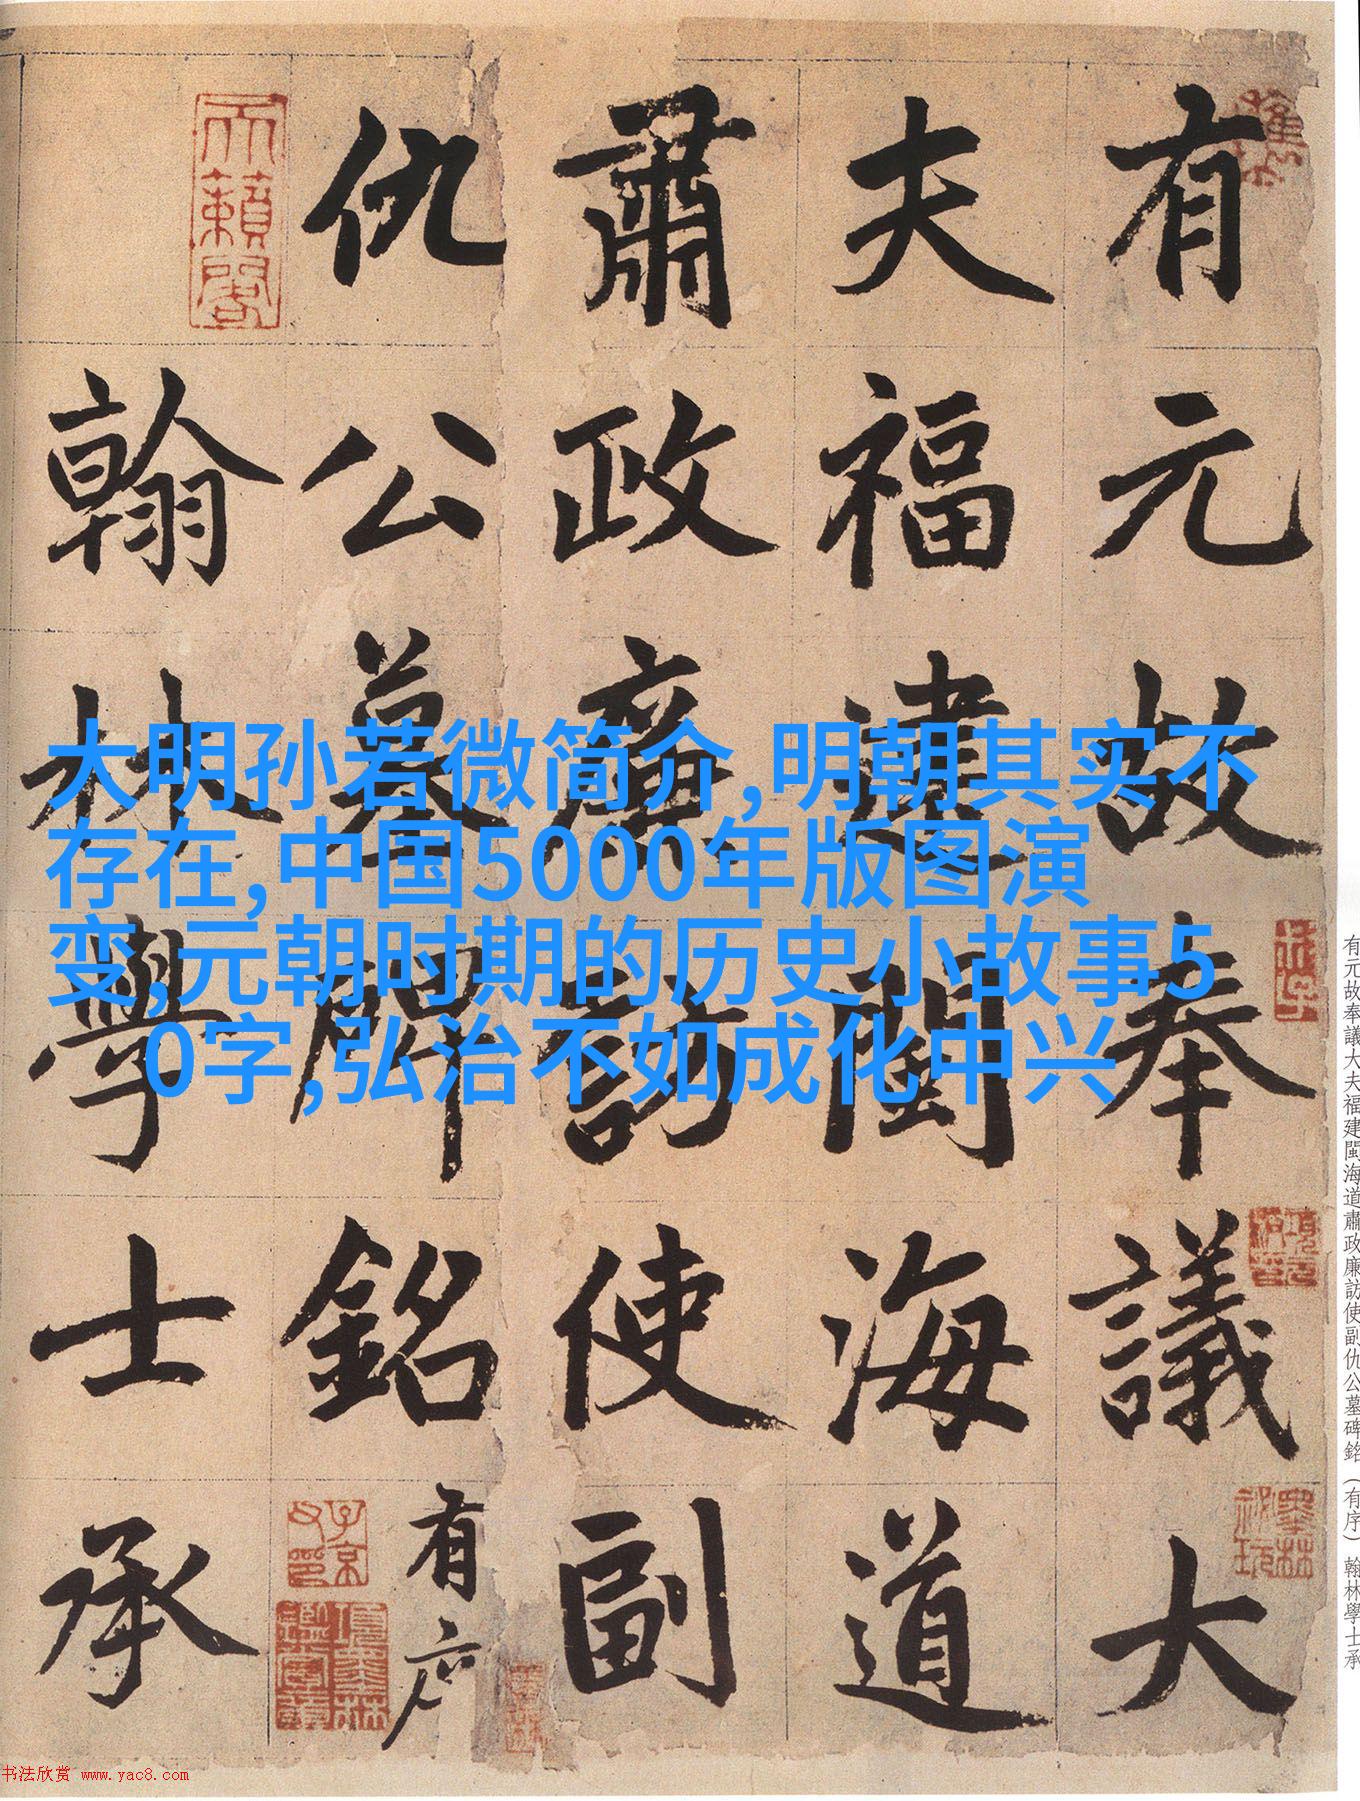 有元故奉議大
夫福建閩海道
肅政廉訪使副
仇公墓碑銘有序
翰林學士承
大明孙若微简介,明朝其实不
存在,中国5000年版图演
变,元朝时期的历史小故事5
0字,弘治不如成化中兴
天籟閣
子京父印
有元故奉議大夫福建閩海道肅政廉訪使副仇公墓碑銘（有序）翰林學士承
书法欣赏 www.yac8.com